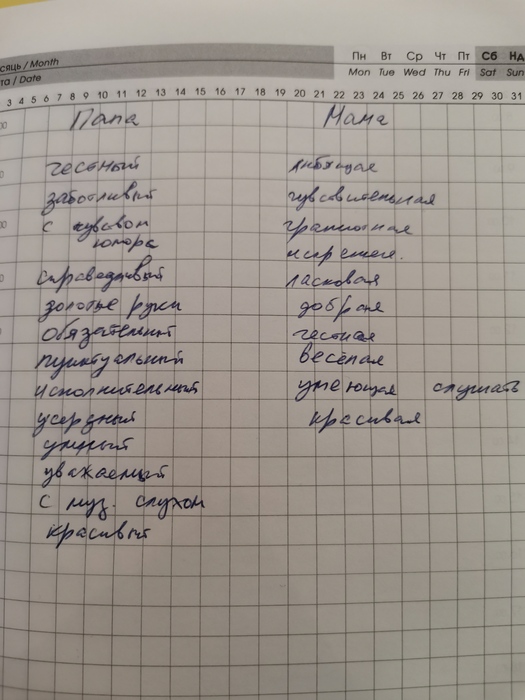 сяць / Month
та / Date
Пн Вт Ср Чт Пт Сб Нд
Mon Tue Wed Thu Fri Sat Sun
3 4 5 6 7 8 9 10 11 12 13 14 15 16 17 18 19 20 21 22 23 24 25 26 27 28 29 30 31
Папа
честный
заботливый
с чувством
юмора
справедливый
золотые руки
обязательный
пунктуальный
исполнительный
усердный
умный
уважаемый
с муз. слухом
красивый
Мама
любящая
чувствительная
грамотная
ласковая
добрая
честная
весёлая
умеющая слушать
красивая